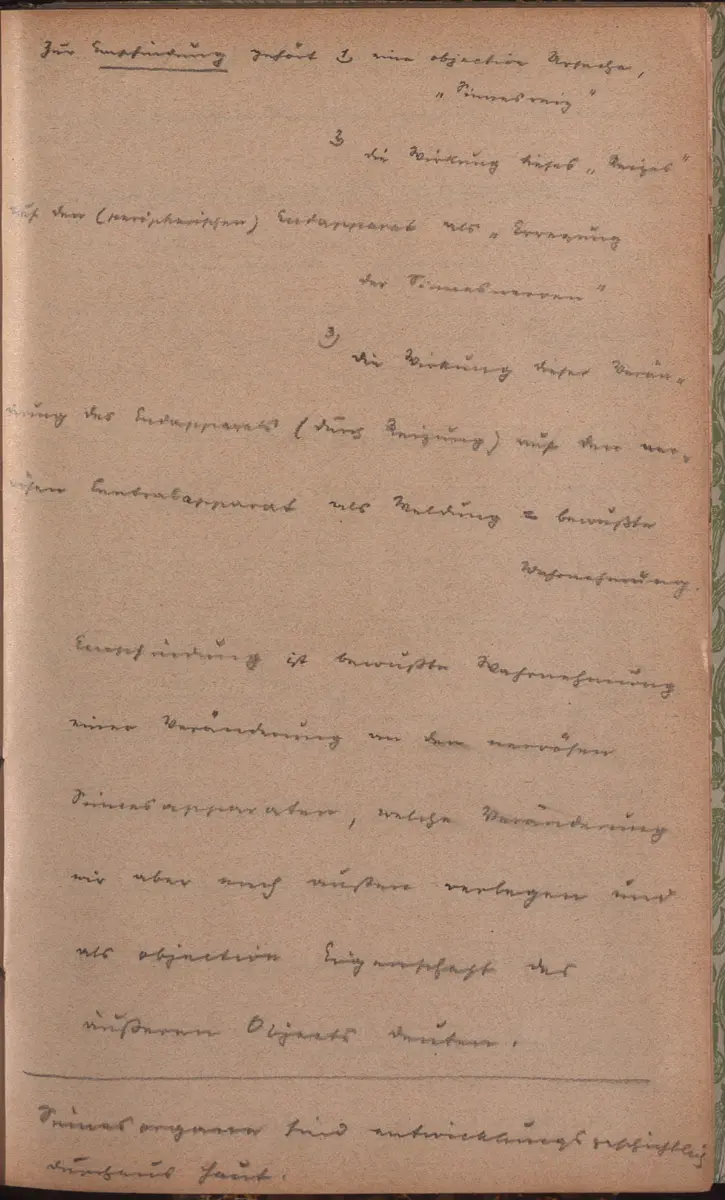 Zur Empfindung gehört 1) eine objective Ursache,
„Sinnesreiz“
2)
die Wirkung dieses „Reizes“
auf den (peripherischen) Endapparat als „Erregung
der Sinnesnerven“
3)
die Wirkung dieser Verän-
rung des Endapparats (durch Reizung) auf den ner-
vösen Centralapparat als Meldung = bewußte
Wahrnehmung.
Empfindung ist bewußte Wahrnehmung
einer Veränderung an den nervösen
Sinnesapparaten, welche Veränderung
wir aber nach außen verlegen und
als objective Eigenschaft des
äußeren Objects deuten.
Sinnesorgane sind entwicklungsgeschichtlich
durchaus Haut.